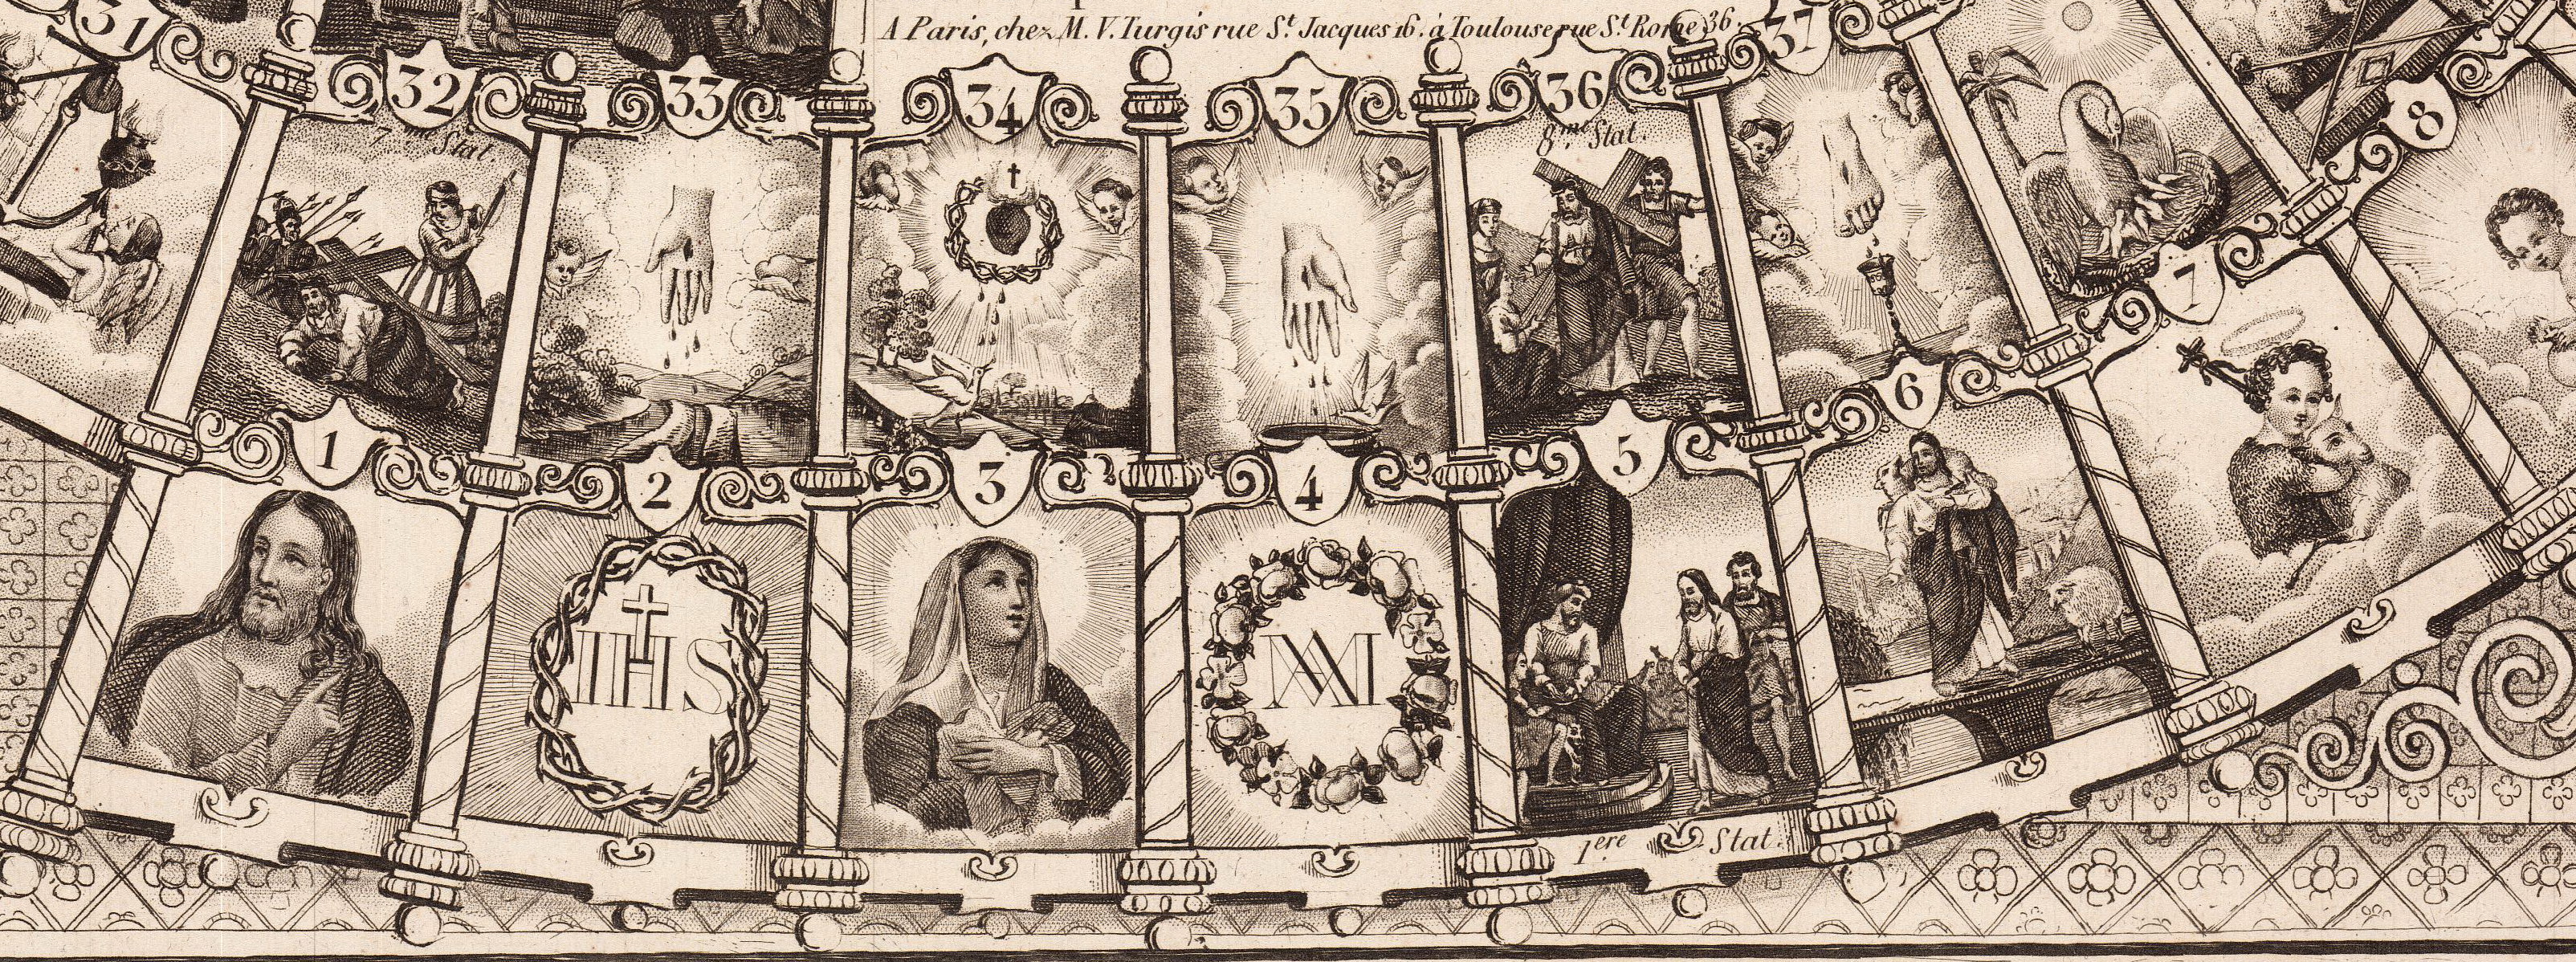 A Paris, chez M. V. Turgis rue St. Jacques 16. à Toulouse rue St. Rome 36.
31
32
33
34
35
36
37
7me Stat.
8me Stat.
8
7
1
2
3
4
5
6
IHS
MA
1ere Stat.